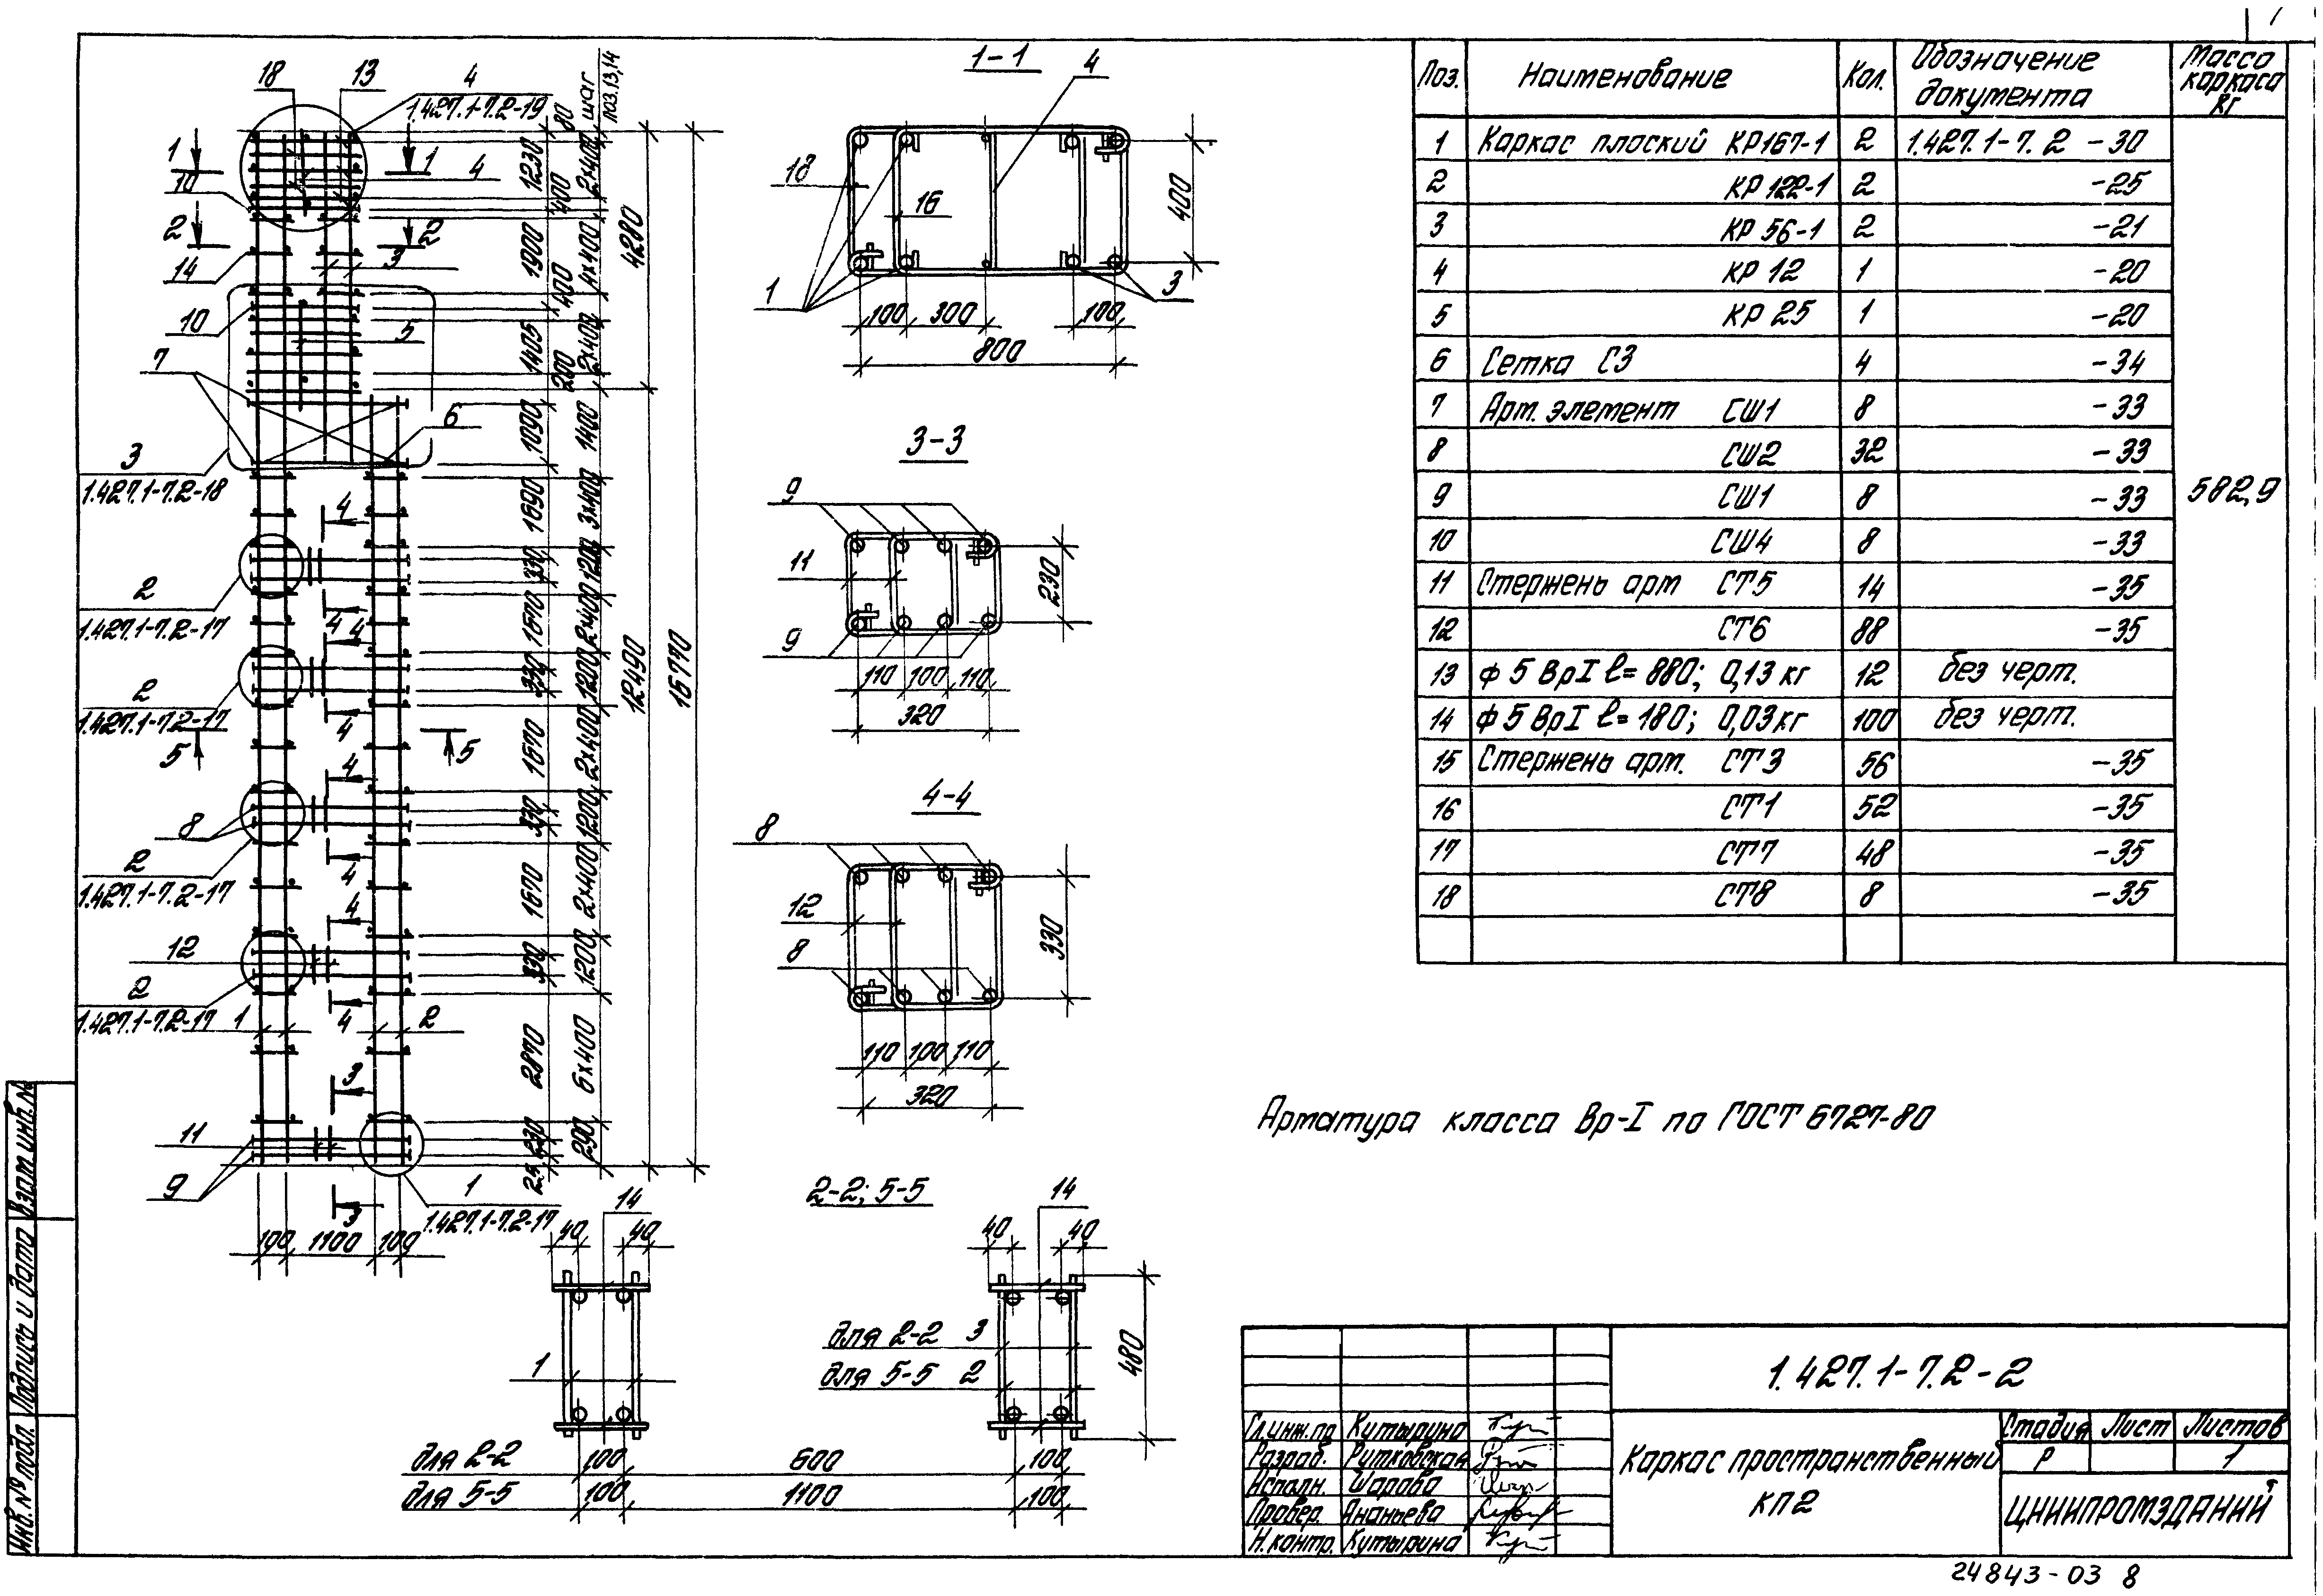 18
13
4
1.427.1-7.2-19
80
шаг
поз.13,14
1
1
4
10
2
2
3
14
10
5
7
6
3
1.427.1-7.2-18
4
2
1.427.1-7.2-17
4
4
2
1.427.1-7.2-17
4
5
5
4
8
2
1.427.1-7.2-17
4
4
12
2
1.427.1-7.2-17
4
1
2
3
11
9
3
1
1.427.1-7.2-17
100
1100
100
1230
400
1900
400
1405
200
1090
1690
330
1670
330
1670
330
1670
330
2870
230
25
2×400
4×400
2×400
1400
3×400
1200
2×400
1200
2×400
1200
2×400
1200
6×400
290
4280
12490
16770
1-1
4
18
16
1
3
400
100
300
100
800
3-3
9
11
9
230
110
100
110
320
4-4
8
12
8
330
110
100
110
320
2-2; 5-5
14
40
40
1
14
40
40
для 2-2 3
для 5-5 2
480
для 2-2 100 600 100
для 5-5 100 1100 100
Поз. Наименование Кол. Обозначение документа Масса каркаса кг
1 Каркас плоский КР167-1 2 1.427.1-7.2 -30
2 КР122-1 2 -25
3 КР56-1 2 -21
4 КР12 1 -20
5 КР25 1 -20
6 Сетка С3 4 -34
7 Арт. элемент СШ1 8 -33
8 СШ2 32 -33
9 СШ1 8 -33
582,9
10 СШ4 8 -33
11 Стержень арм СТ5 14 -35
12 СТ6 88 -35
13 ф5ВрI ℓ=880; 0,13кг 12 без черт.
14 ф5ВрI ℓ=180; 0,03кг 100 без черт.
15 Стержень арм. СТ3 56 -35
16 СТ1 52 -35
17 СТ7 48 -35
18 СТ8 8 -35
Арматура класса Вр-I по ГОСТ 6727-80
Взам.инв.№
Подпись и дата
Инв.№ подл.
1.427.1-7.2-2
Гл.инж.пр Кутырина
Разраб. Рутковская
Исполн. Шарова
Провер. Ананьева
Н.контр. Кутырина
Каркас пространственный
КП2
Стадия Лист Листов
Р 1
ЦНИИПРОМЗДАНИЙ
24843-03 8